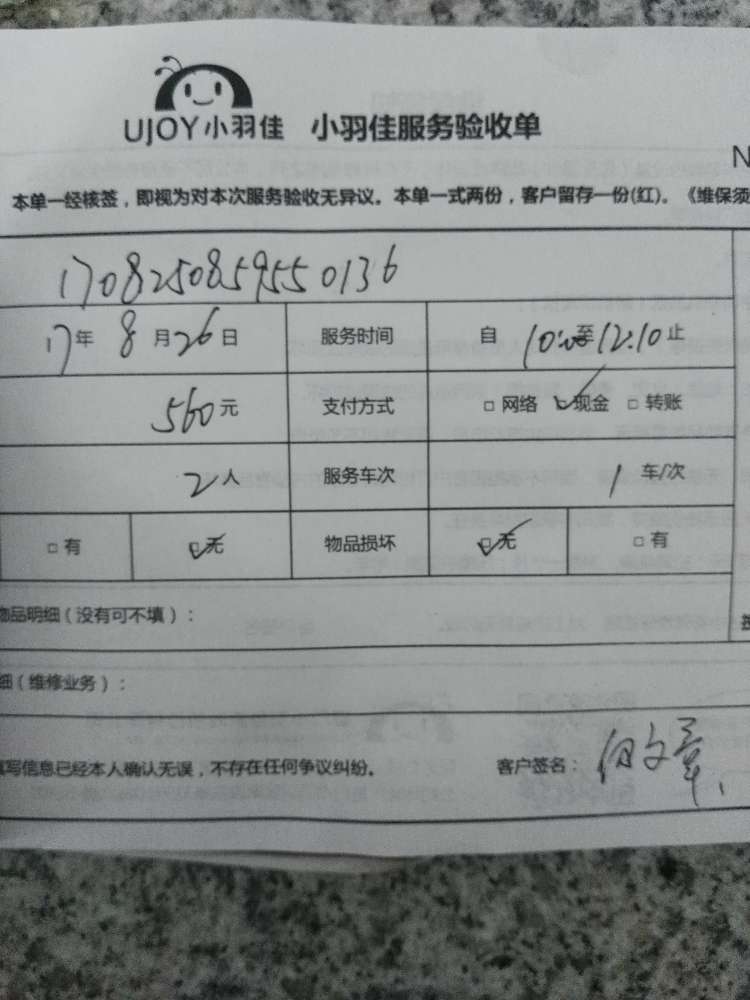 UJOY小羽佳 小羽佳服务验收单
N
本单一经核签，即视为对本次服务验收无异议。本单一式两份，客户留存一份(红)。《维保须
170825085955 0136
17年 8月26日 服务时间 自 10:00至12:10止
560元 支付方式 □网络 ☑现金 □转账
2人 服务车次 1 车/次
□有 ☑无 物品损坏 ☑无 □有
物品明细（没有可不填）：
细（维修业务）：
填写信息已经本人确认无误，不存在任何争议纠纷。 客户签名：何文章